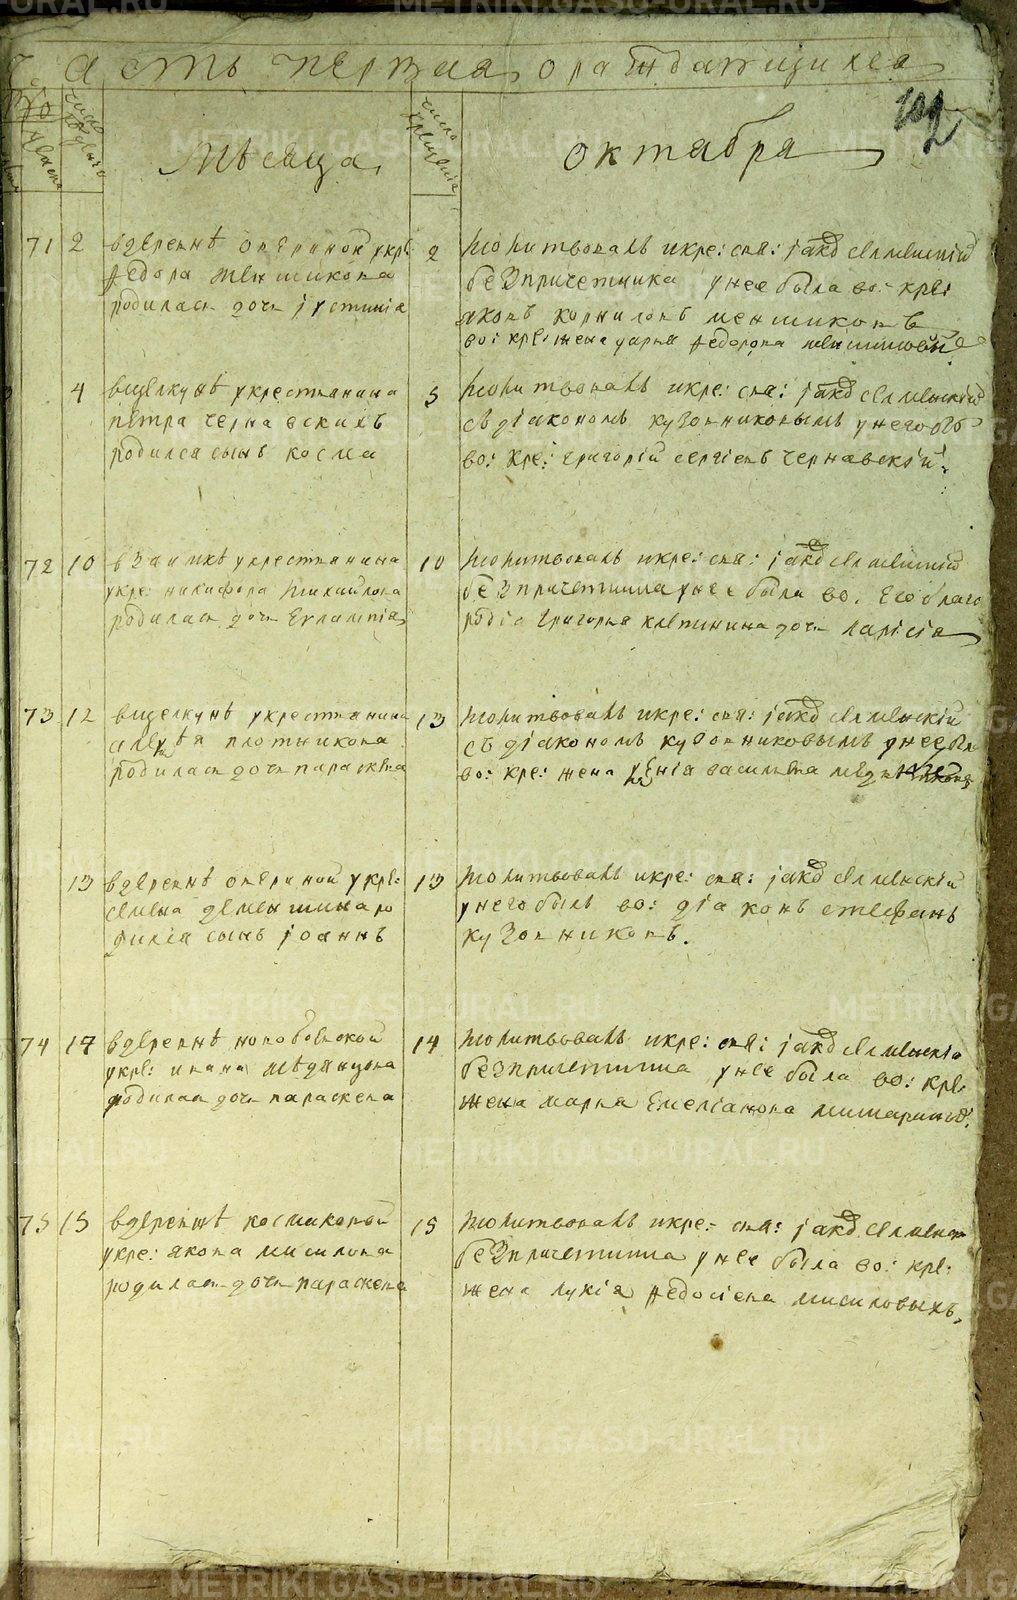 часть первая о раждающихся
102
число рождения
число крещения
месяца
октября
71 2
вдеревнѣ озериной укре:
федора меншикова
родилась дочь іустинія
2
молитвовалъ икре: свя: іаков селменскій
безпричетника унее была во: кре:
яковъ корниловъ меншиковъ
во: кре: жена дарья федорова меншиковы
4
вщелкунѣ укрестьянина
петра чернавскихъ
родился сынъ косма
5
молитвовалъ икре: свя: іаков селменскій
съ діакономъ кузовниковымъ унего бы
во: кре: григорій сергіевъ чернавскій
72 10
взаимкѣ укрестьянина
укре: никифора михайлова
родилась дочь евлампія
10
молитвовалъ икре: свя: іаков селменскій
безпричетника унее была во: его благо
родія григорья клепинина дочь ларісія
73 12
вщелкунѣ укрестьянина
плотникова
родилась дочь параскева
13
молитвовалъ икре: свя: іаков селменскій
съ діакономъ кузовниковымъ унее бы
во: кре: жена васильева
13
вдеревнѣ озериной укре:
семена деменшина ро
дился сынъ іоаннъ
13
молитвовалъ икре: свя: іаков селменскій
унего былъ во: діаконъ стефанъ
кузовниковъ.
74 17
вдеревнѣ новобоевской
укре: ивана медянцова
родилась дочь параскева
14
молитвовалъ икре: свя: іаков селменскій
безпричетника унее была во: кре:
жена марья емеліанова
75 15
вдеревнѣ космаковой
укре: якова мисилова
родилась дочь параскева
15
молитвовалъ икре: свя: іаков селменск
безпричетника унее была во: кре:
жена лукія федосіева мисиловыхъ,
METRIKI.GASO-URAL.RU